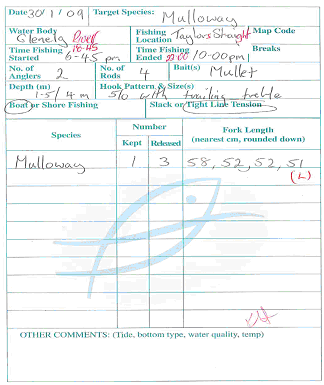 Date 30/1/09 Target Species: Mulloway
Water Body Glenelg River Fishing Location Taylors Straight Map Code
Time Fishing Started 6-45 pm 18:45 Time Fishing Ended 22:00 10-00pm Breaks
No. of Anglers 2 No. of Rods 4 Bait(s) Mullet
Depth (m) 1-5/4m Hook Pattern & Size(s) 5/0 with trailing treble
Boat or Shore Fishing Slack or Tight Line Tension
Species Number Fork Length
Kept Released (nearest cm, rounded down)
Mulloway 1 3 58, 52, 52, 51
(L)
OTHER COMMENTS: (Tide, bottom type, water quality, temp)